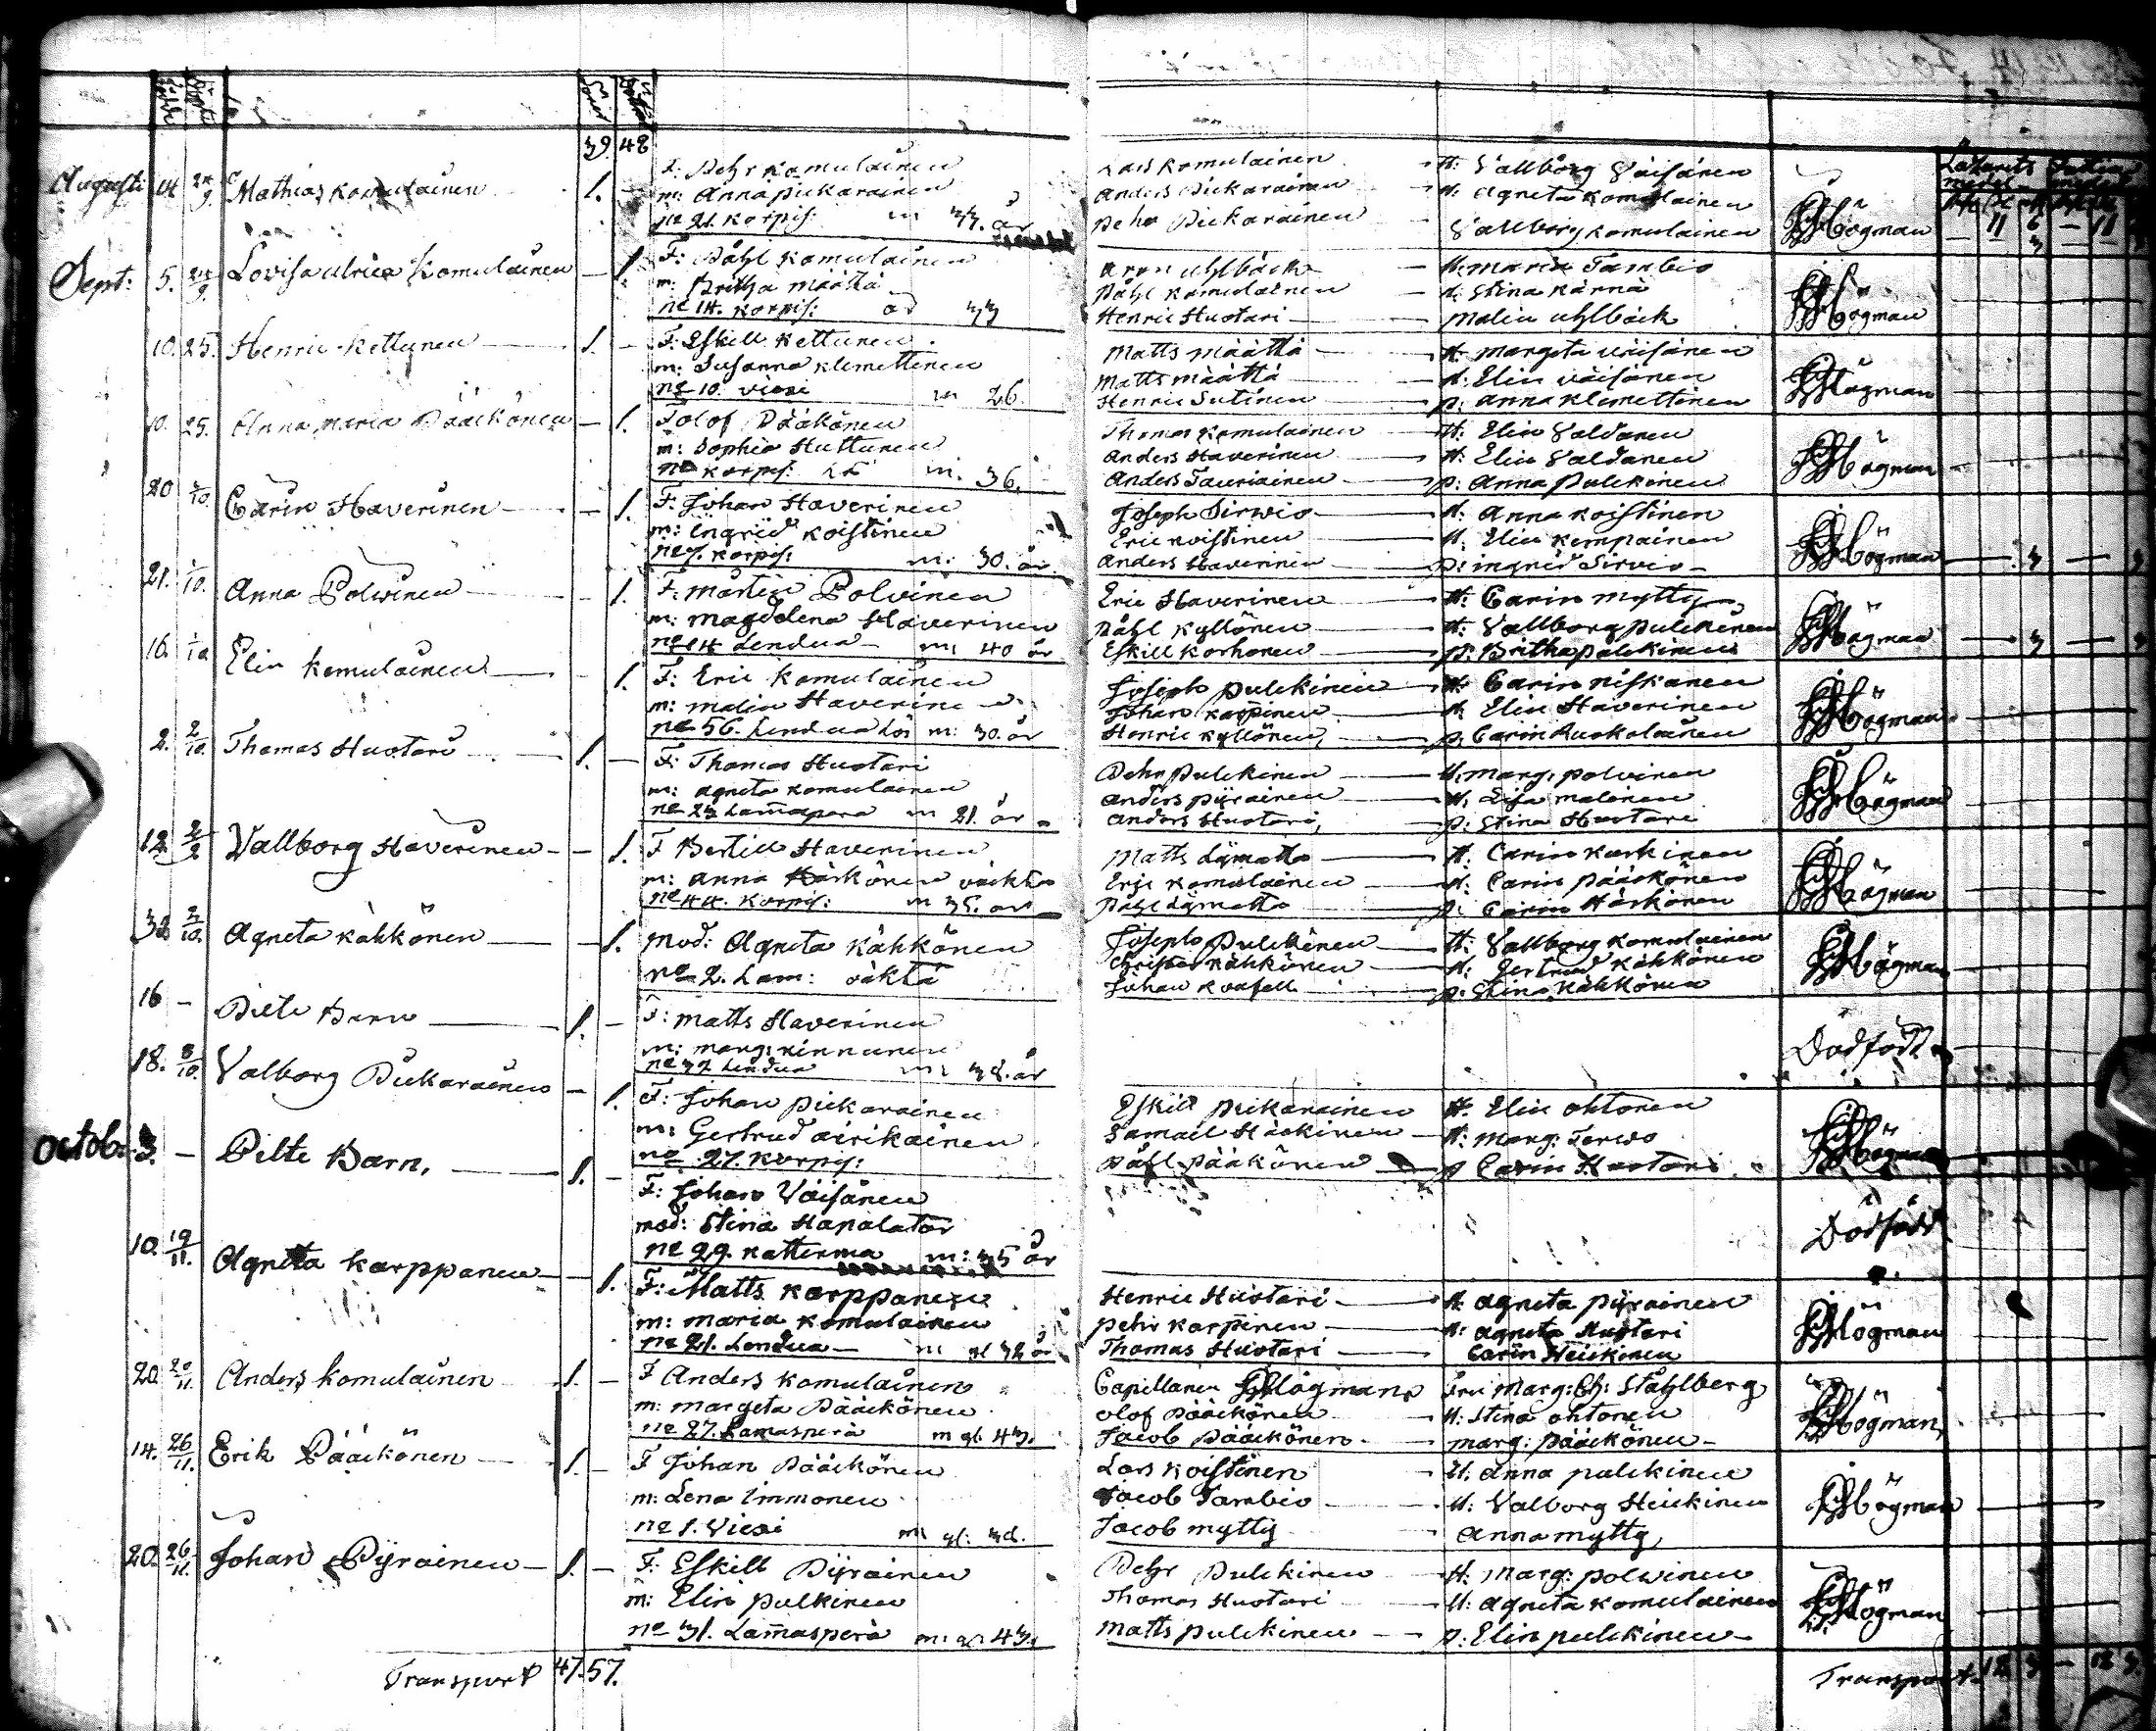 39. 48
Augusti 14 24/9 Mathias Komulainen 1. – F: Pehr Komulainen Lars Komulainen H: Vallborg Väisänen
m: Anna Pickarainen Anders Pickarainen H: Agneta Komulainen Högman
no 21. Korpis: m 37. år Pehr Pickarainen Vallborg Komulainen
Sept: 5. 24/9 Lovisa Ulrica Komulainen – 1. F: Påhl Komulainen Aron Uhlbäck H: Maria Tambio
m: Britha Määttä Påhl Komulainen H: Stina Kärnä Högman
no 14. Korpis: 33 Henric Huotari Malin Uhlbäck
10. 25. Henric Kettunen 1. – F: Eskill Kettunen Matts Määttä H: Margeta Väisänen
m: Susanna Klemettinen Matts Määttä H: Elin Väisänen Högman
no 10. Viexi m 26. Henric Sutinen p: Anna Klemettinen
10. 25. Anna Maria Pääckönen – 1. F Olof Pääkönen Thomas Komulainen H: Elin Valdanen
m: Sophia Huttunen Anders Haverinen H: Elin Valdanen Högman
no Korpis: m: 36. Anders Tauriainen p: Anna Pulckinen
20 Carin Haverinen – 1. F: Johan Haverinen Joseph Sirwio H: Anna Koistinen
m: Ingrid Koistinen Eric Koistinen H: Elin Kempainen Högman – 3 –
no 7. Korpis: m: 30. år Anders Haverinen p: Ingrid Sirvio
21. 1/10. Anna Polwinen – 1. F: Mårten Polvinen Eric Haverinen H: Carin Mytty
m: Magdelena Haverinen Påhl Kyllönen H: Vallborg Pulckinen Högman – 3 –
no 14 Lendua m: 40 år Eskill Korhonen p: Britha Pulckinen
16. 1/10 Elin Komulainen – 1. F: Eric Komulainen Joseph Pulckinen H: Carin Niskanen
m: Malin Haverinen Johan Karpinen H: Elin Haverinen Högman
no 56. Lendua m: 30. år Henric Kyllönen p: Carin Ruokolainen
2. 2/10. Thomas Huotari 1. – F: Thomas Huotari Pehr Pulckinen H: Marg: Polvinen
m: Agneta Komulainen Anders Pyrainen H: Lisa Malinen Högman
no 23 Lam̄aspera m 21. år Anders Huotari p: Stina Huotari
12 Vallborg Haverinen – 1. F Bertill Haverinen Matts Lymatta H: Carin Karkinen
m: Anna Karkönen Eric Komulainen H: Carin Pääckönen Högman
no 44. Korpis: m 35. år Påhl Lymatta p: Carin Härkönen
2/10. Agneta Kähkönen – 1. Mod: Agneta Kähkönen Joseph Pulckinen H: Vallborg Komulainen
no 2. Lam: Christer Kähkönen H: Gertrud Kähkönen Högman
Johan p: Stina Kähkönen
16 – Pilte Barn 1. – F: Matts Haverinen
m: Marg: Kinnunen Dödfödt
no 32 Lendua m: 38. år
18. 8/10. Valborg Pickarainen – 1. F: Johan Pickarainen Eskill Pickarainen H: Elin Ohtonen
m: Gertrud Airikainen Samuel Häckinen H: Marg: Terwo Högman
no 27. Korpis: Påhl Pääkönen p Carin Huotari
Octob: 3. – Pilte Barn. 1. – F: Johan Väisänen
mod: Stina Hapalatar Dödfödt
no 29. Katterma m: 35 år
10. 19/11. Agneta Karppanen – 1. F: Matts Karppanen Henric Huotari H: Agneta Pyrainen
m: Maria Komulainen Pehr Karpinen H: Agneta Huotari Högman
no 21. Lendua m gl 32 år Thomas Huotari Carin Heickinen
20. 20/11. Anders Komulainen 1. – F Anders Komulainen Capellanen Högman Fru Marg: Ch: Ståhlberg
m: Margeta Pääckönen Olof Pääckönen H: Stina Ohtonen Högman
no 27. Lamasperä m gl. 43. Jacob Pääckönen Marg: Pääckönen
14. 26/11. Erik Pääckönen 1. – F Johan Pääckönen Lars Koistinen H: Anna Pulckinen
m: Lena Immonen Jacob Tambio H: Valborg Heickinen Högman
no 1. Viexi m gl: 38. Jacob Mytty Anna Mytty
20. 26/11. Johan Pyrainen 1. – F: Eskill Pyrainen Pehr Pulckinen H: Marg: Polwinen
m: Elin Pulkinen Thomas Huotari H: Agneta Komulainen Högman
no 31. Lam̄asperä m: gl. 43. Matts Pulckinen p: Elin Pulckinen
Transport 47. 57. Transport 12 3 – 12 3.